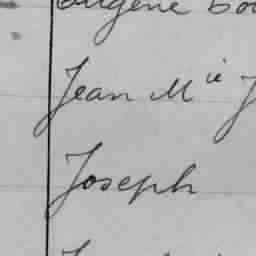 Eugène
Jean Mie J
Joseph